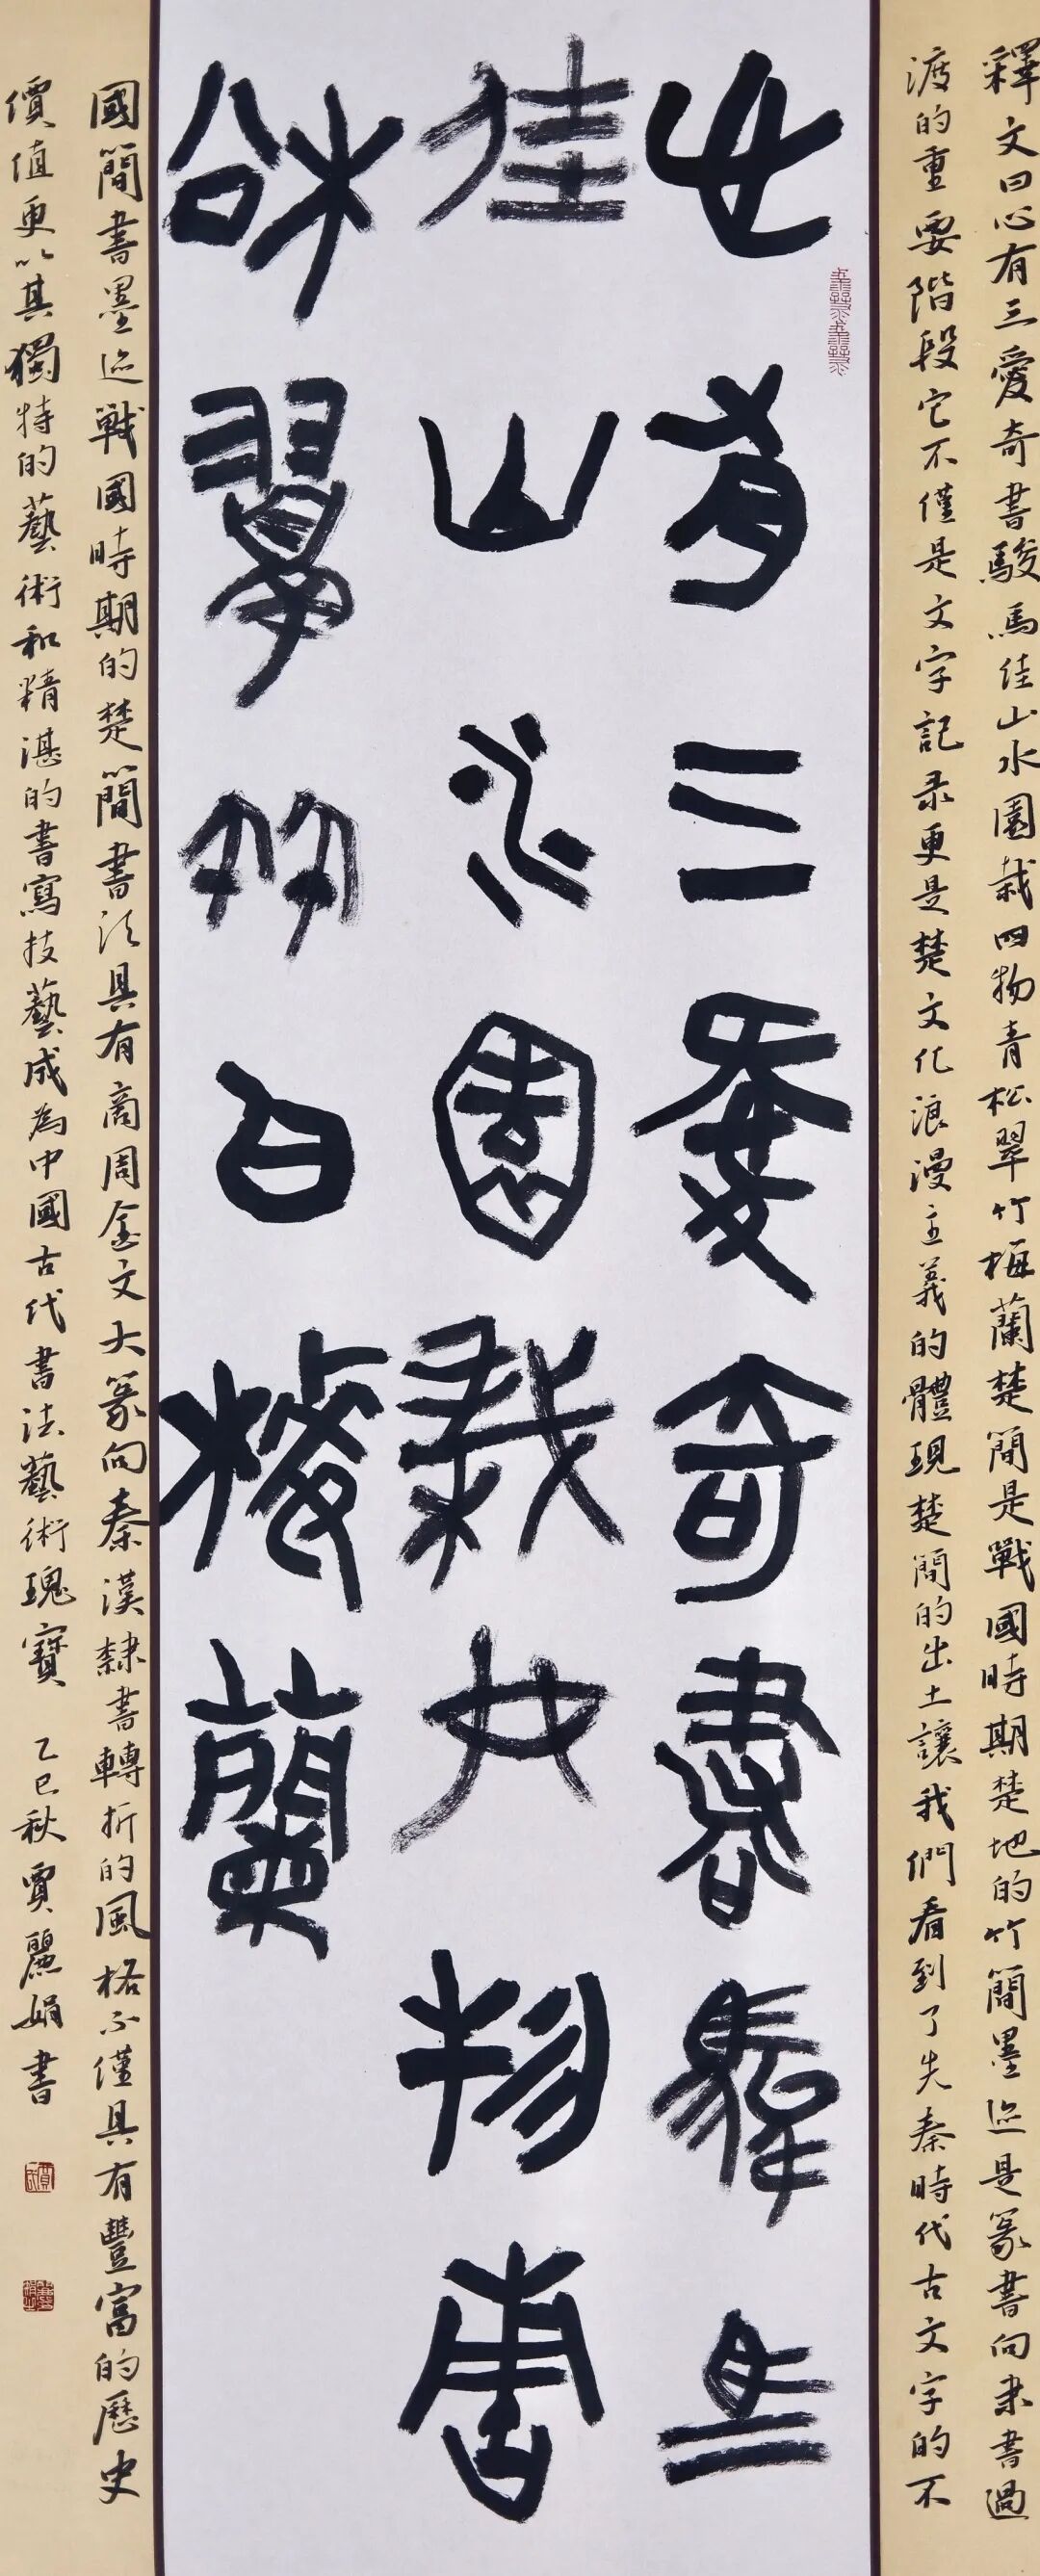 釋文曰心有三愛奇書駿馬佳山水園栽四物青松翠竹梅蘭楚簡是戰國時期楚地的竹簡墨迹是篆書向隶書過
渡的重要階段它不僅是文字記录更是楚文化浪漫主義的體現楚簡的出土讓我們看到了先秦時代古文字的不
心有三愛奇書駿馬
佳山水園栽四物青
松翠竹白梅蘭
國簡書墨迹戰國時期的楚簡書法具有商周金文大篆向秦漢隸書轉折的風格不僅具有豐富的歷史
價值更以其獨特的藝術和精湛的書寫技藝成為中國古代書法藝術瑰寶 乙巳秋賈麗娟書